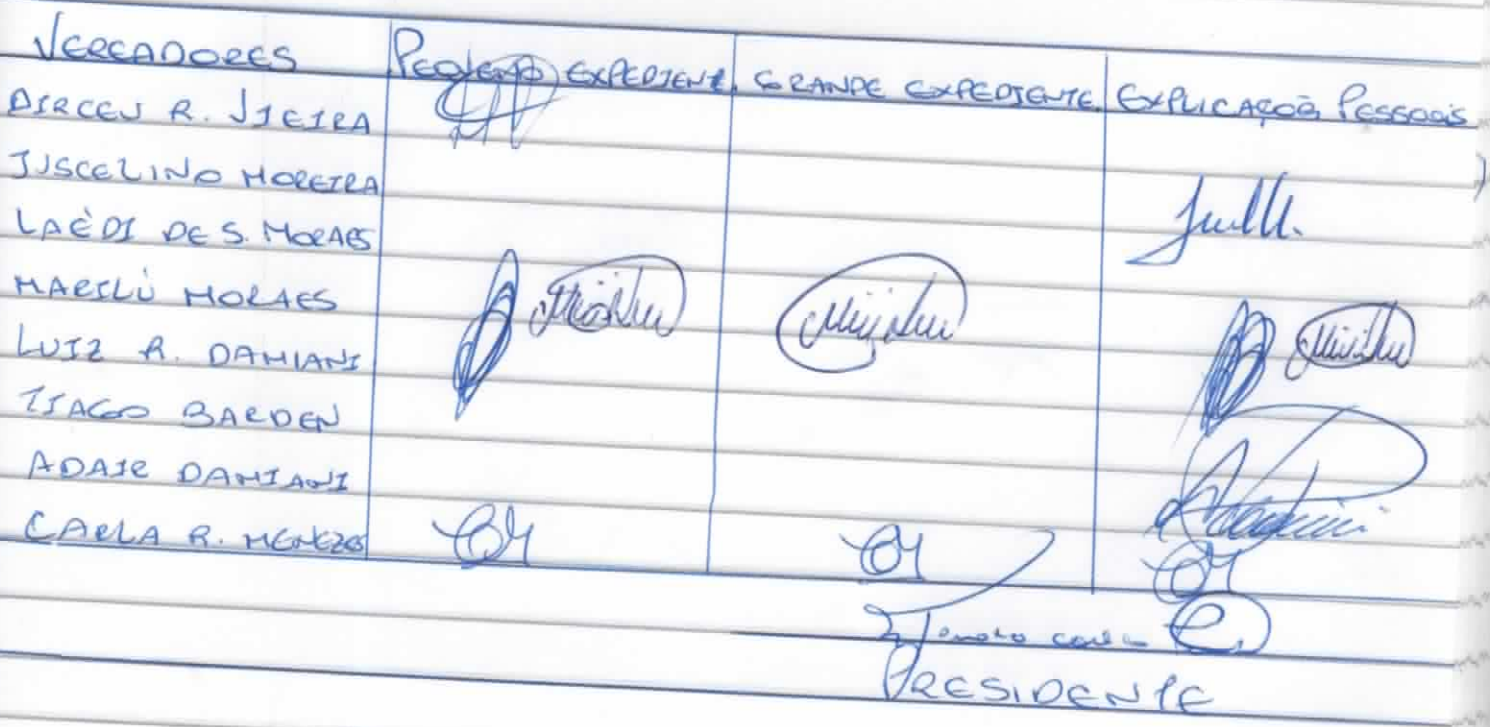 VEREADORES PEQUENO EXPEDIENTE GRANDE EXPEDIENTE EXPLICAÇÕES PESSOAIS
DIRCEU R. VIEIRA
JUSCELINO MOREIRA
LAÈDI DE S. MORAES
MARILÙ MORAES
LUIZ R. DAMIANI
TIAGO BARDEN
ADAIR DAMIANI
CARLA R. MENEZES
PRESIDENTE